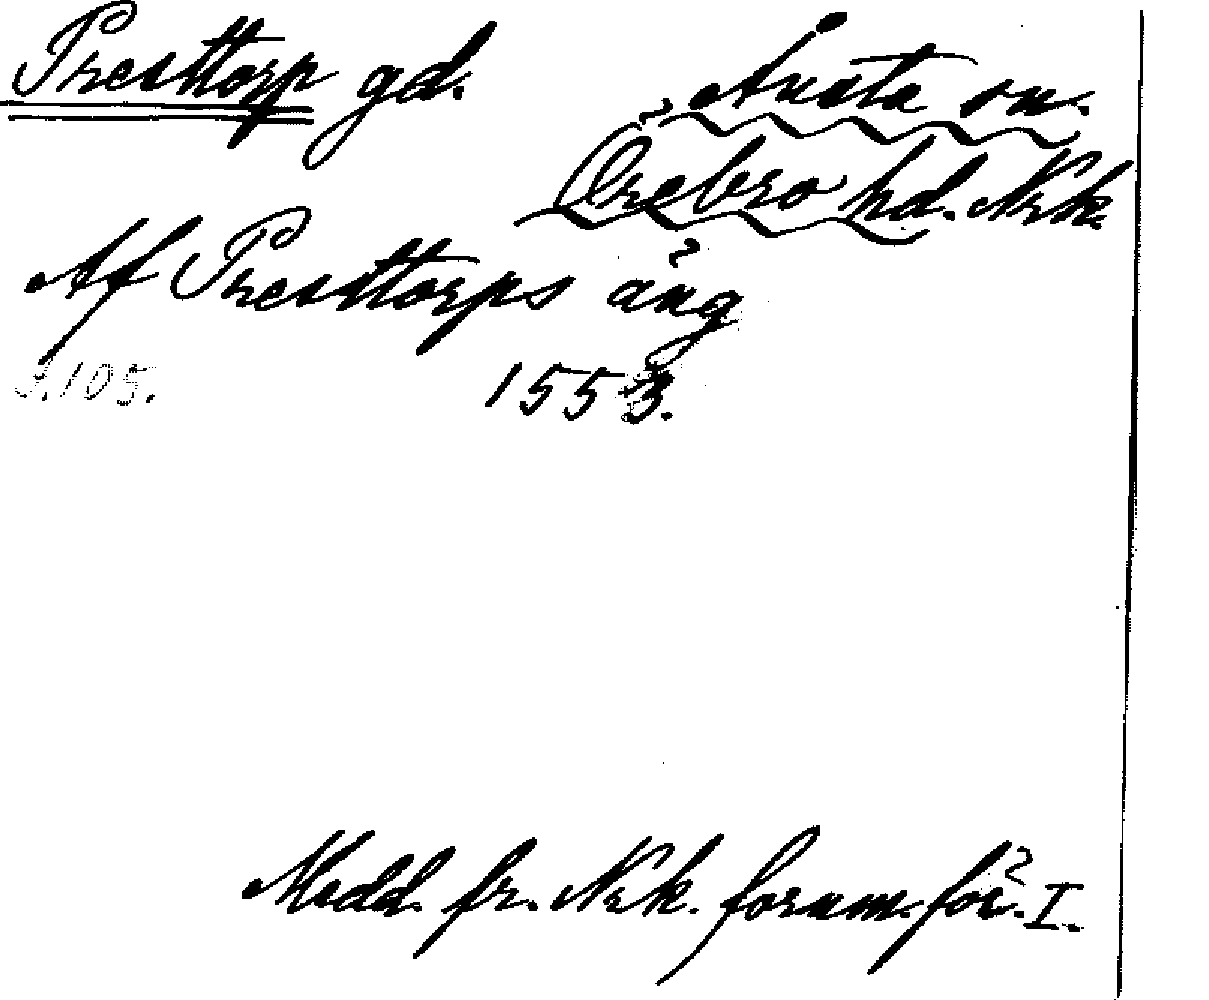 Presttorp gd.
Ånsta sn.
Örebro hd. Nrk.
Af Presttorps äng
S. 105. 1553.
Medd. fr. Nrk. fornm. för. I.